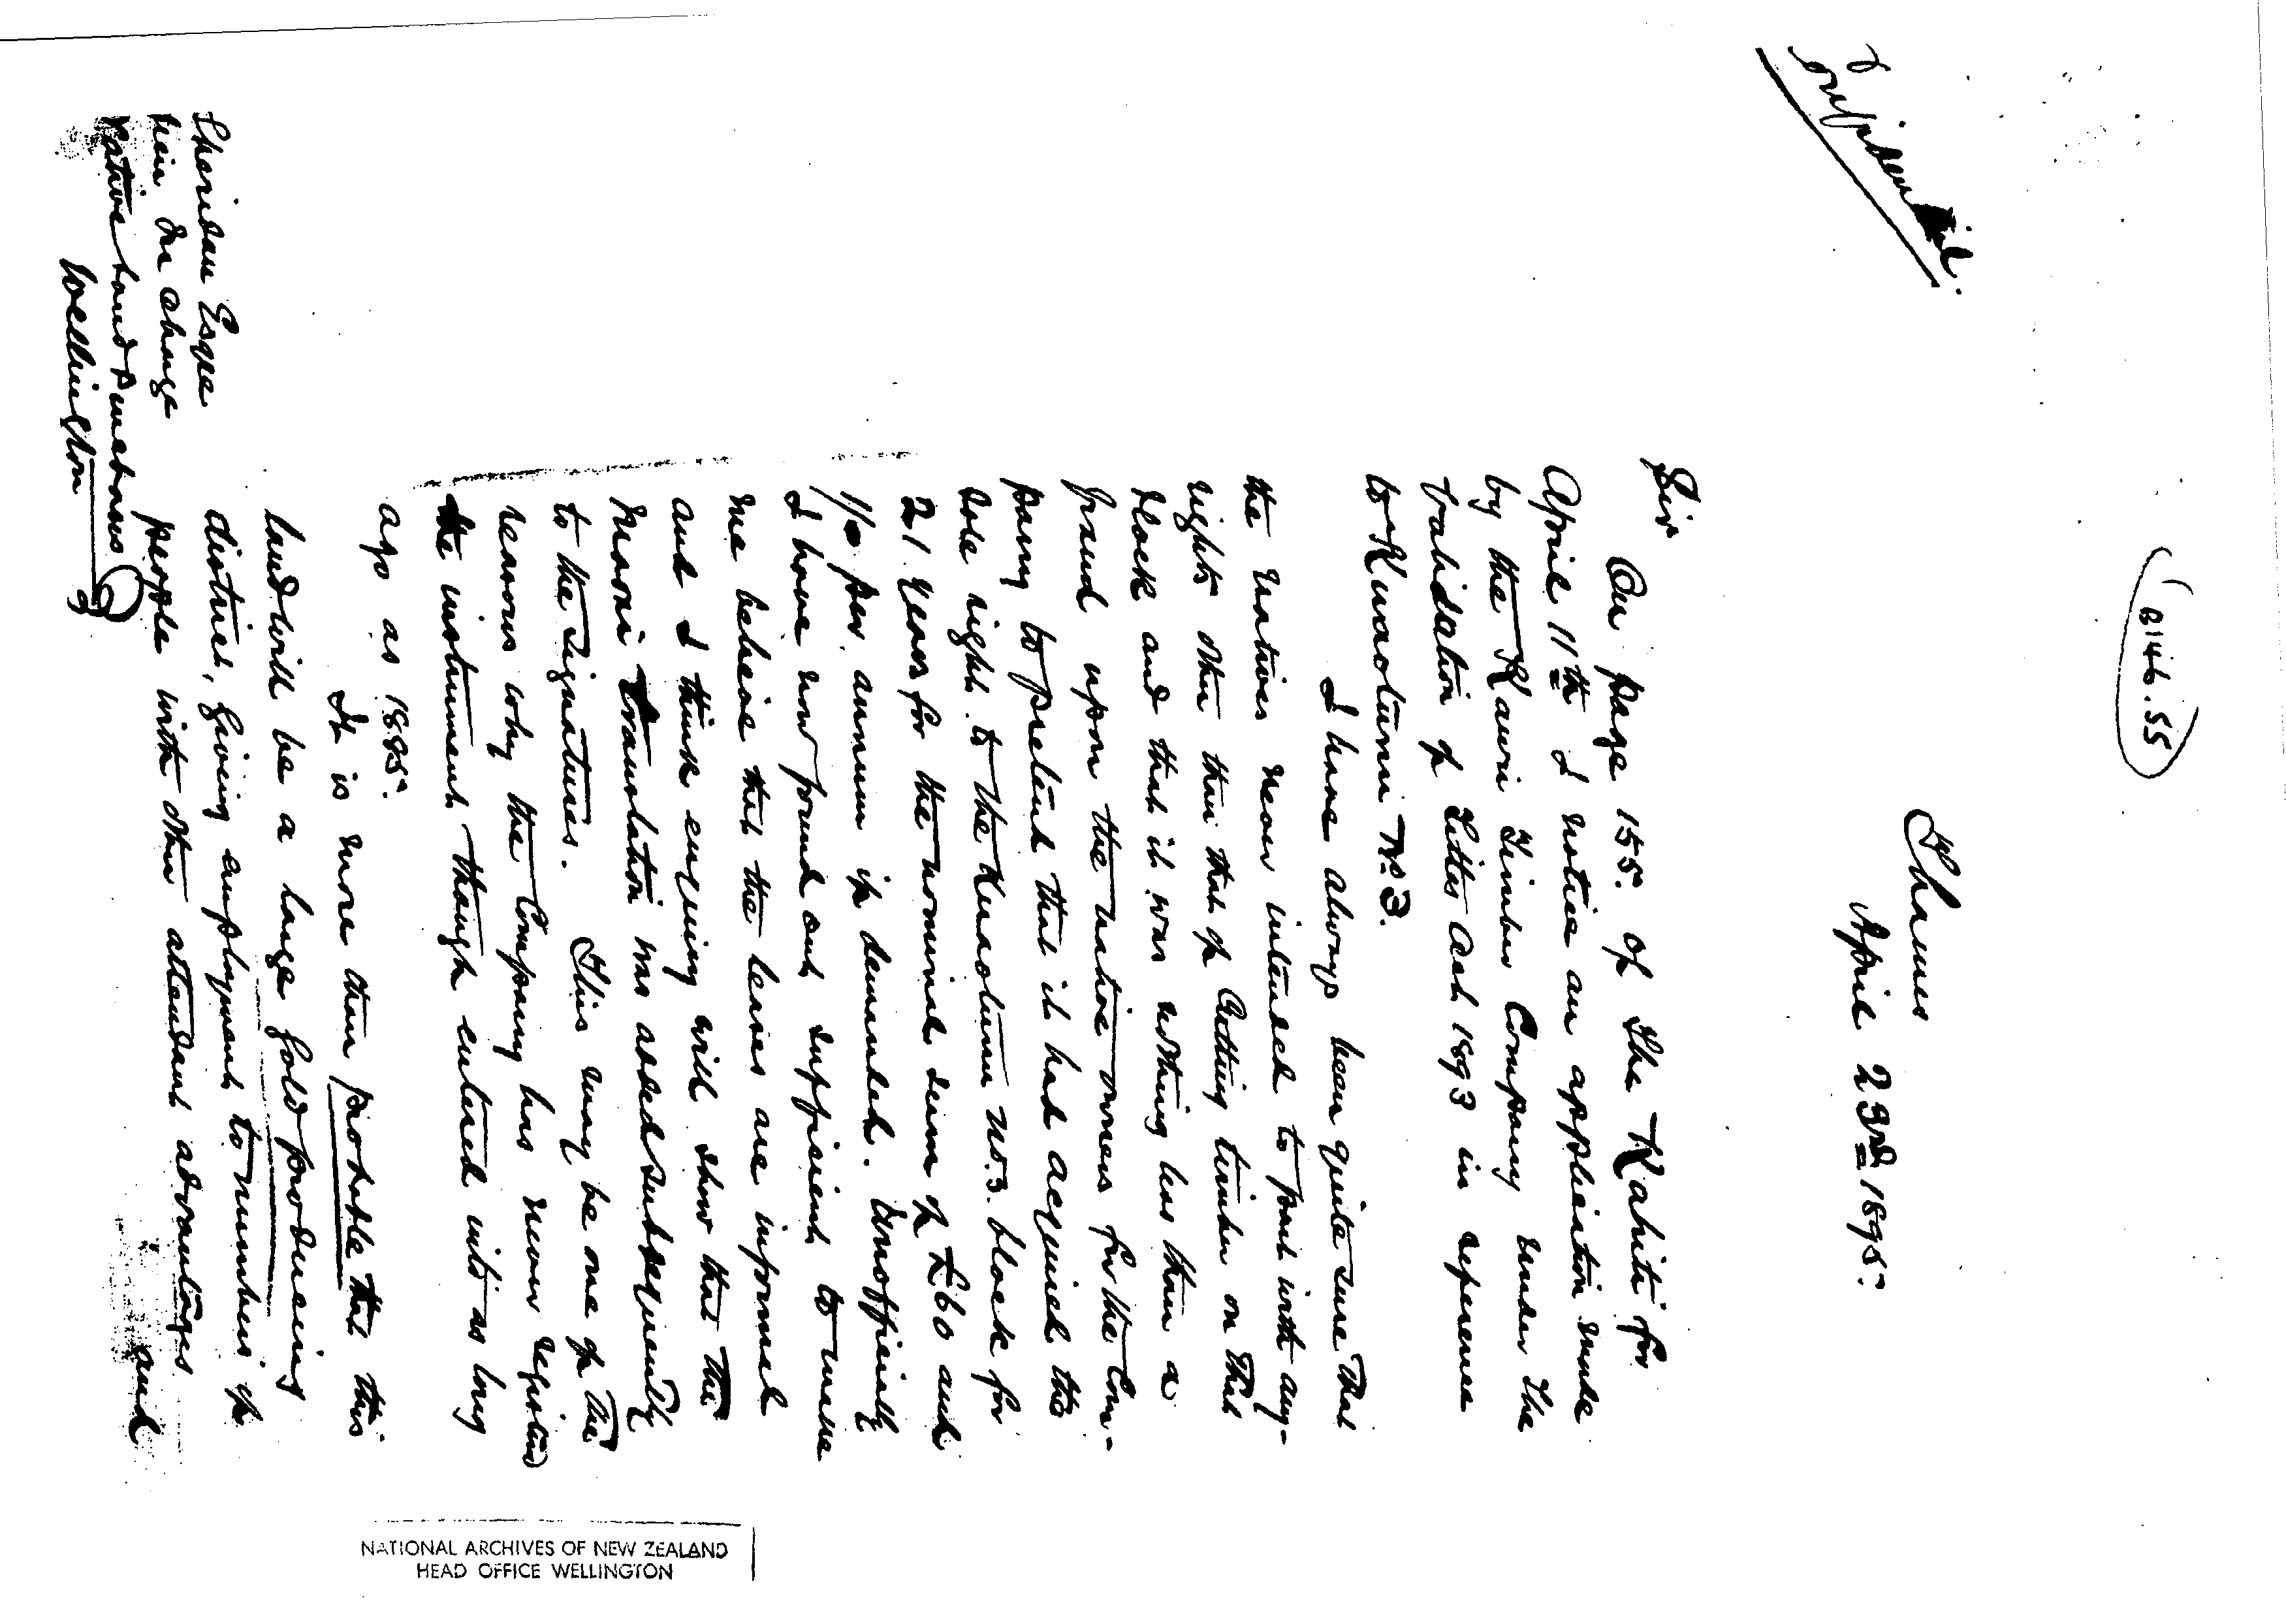 Confidential.
(8146.55)
Thames
April 23rd 1895.
Sir
On page 155. of the Kahiti for
April 11th I notice an application made
by the Kauri Timber Company under the
Validation of Titles Act 1893 in reference
to Kuaotunu No 3.
I have always been quite sure that
the natives never intended to part with any-
rights other than that of cutting timber on that
block and that it was nothing less than a
fraud upon the native owners for the Com-
pany to pretend that it had acquired the
sole right to the Kuaotunu No. 3. block for
21 years for the nominal sum of £60 and
1/- per annum if demanded. Unofficially
I have now found out sufficient to make
me believe that the leases are informal
and I think enquiry will show that the
Maori translation was added subsequently
to the signatures. This may be one of the
reasons why the Company has never registered
the instrument though entered into as long
ago as 1885.
It is more than probable that this
land will be a large gold producing
district, giving employment to numbers of
people with other attendant advantages
and
Sheridan Esqre
in charge
Native Land Purchases
Wellington
NATIONAL ARCHIVES OF NEW ZEALAND
HEAD OFFICE WELLINGTON